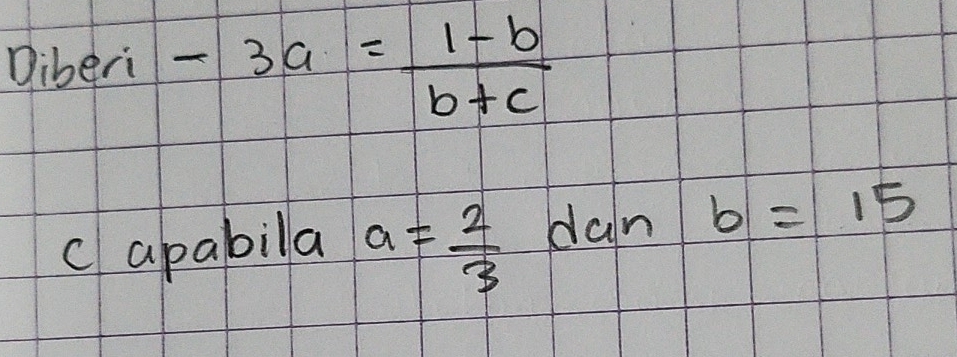 Diberi - 3a = (1-b)/(b+c)
c apabila a = 2/3 dan b = 15